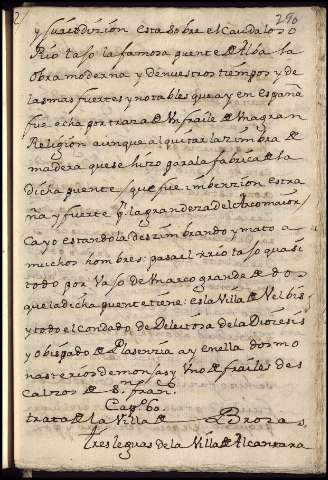 290
y su Jurisdizion esta sobre el Caudaloso
Rio taJo la famosa puente de Alba la
obra moderna y de nuestros tiempos y de
las mas fuertes y notables que ay en España
fue echa por traza de Un fraile de Una gran
Religion aunque al quitar la zimbra de
madera que se hizo para la fabrica de la
dicha puente, que fue imbenzion estra
ña y fuerte por la grandeza del Arco maior
Cayo estandola deszimbrando y mato a
muchos hombres: pasa el rrio taJo quasi
todo por Vaso de Un arco grande de dos
que la dicha puente tiene: es la Villa de Velbis
y todo el condado de Deleitosa de la Diocesis
y obispado de Plasenzia ay en ella dos mo
nasterios de monJas y Uno de frailes des
calzos de S. fran.co
Cap.o 60.
trata de la Villa de Brozas
tres leguas de la Villa de Alcantara